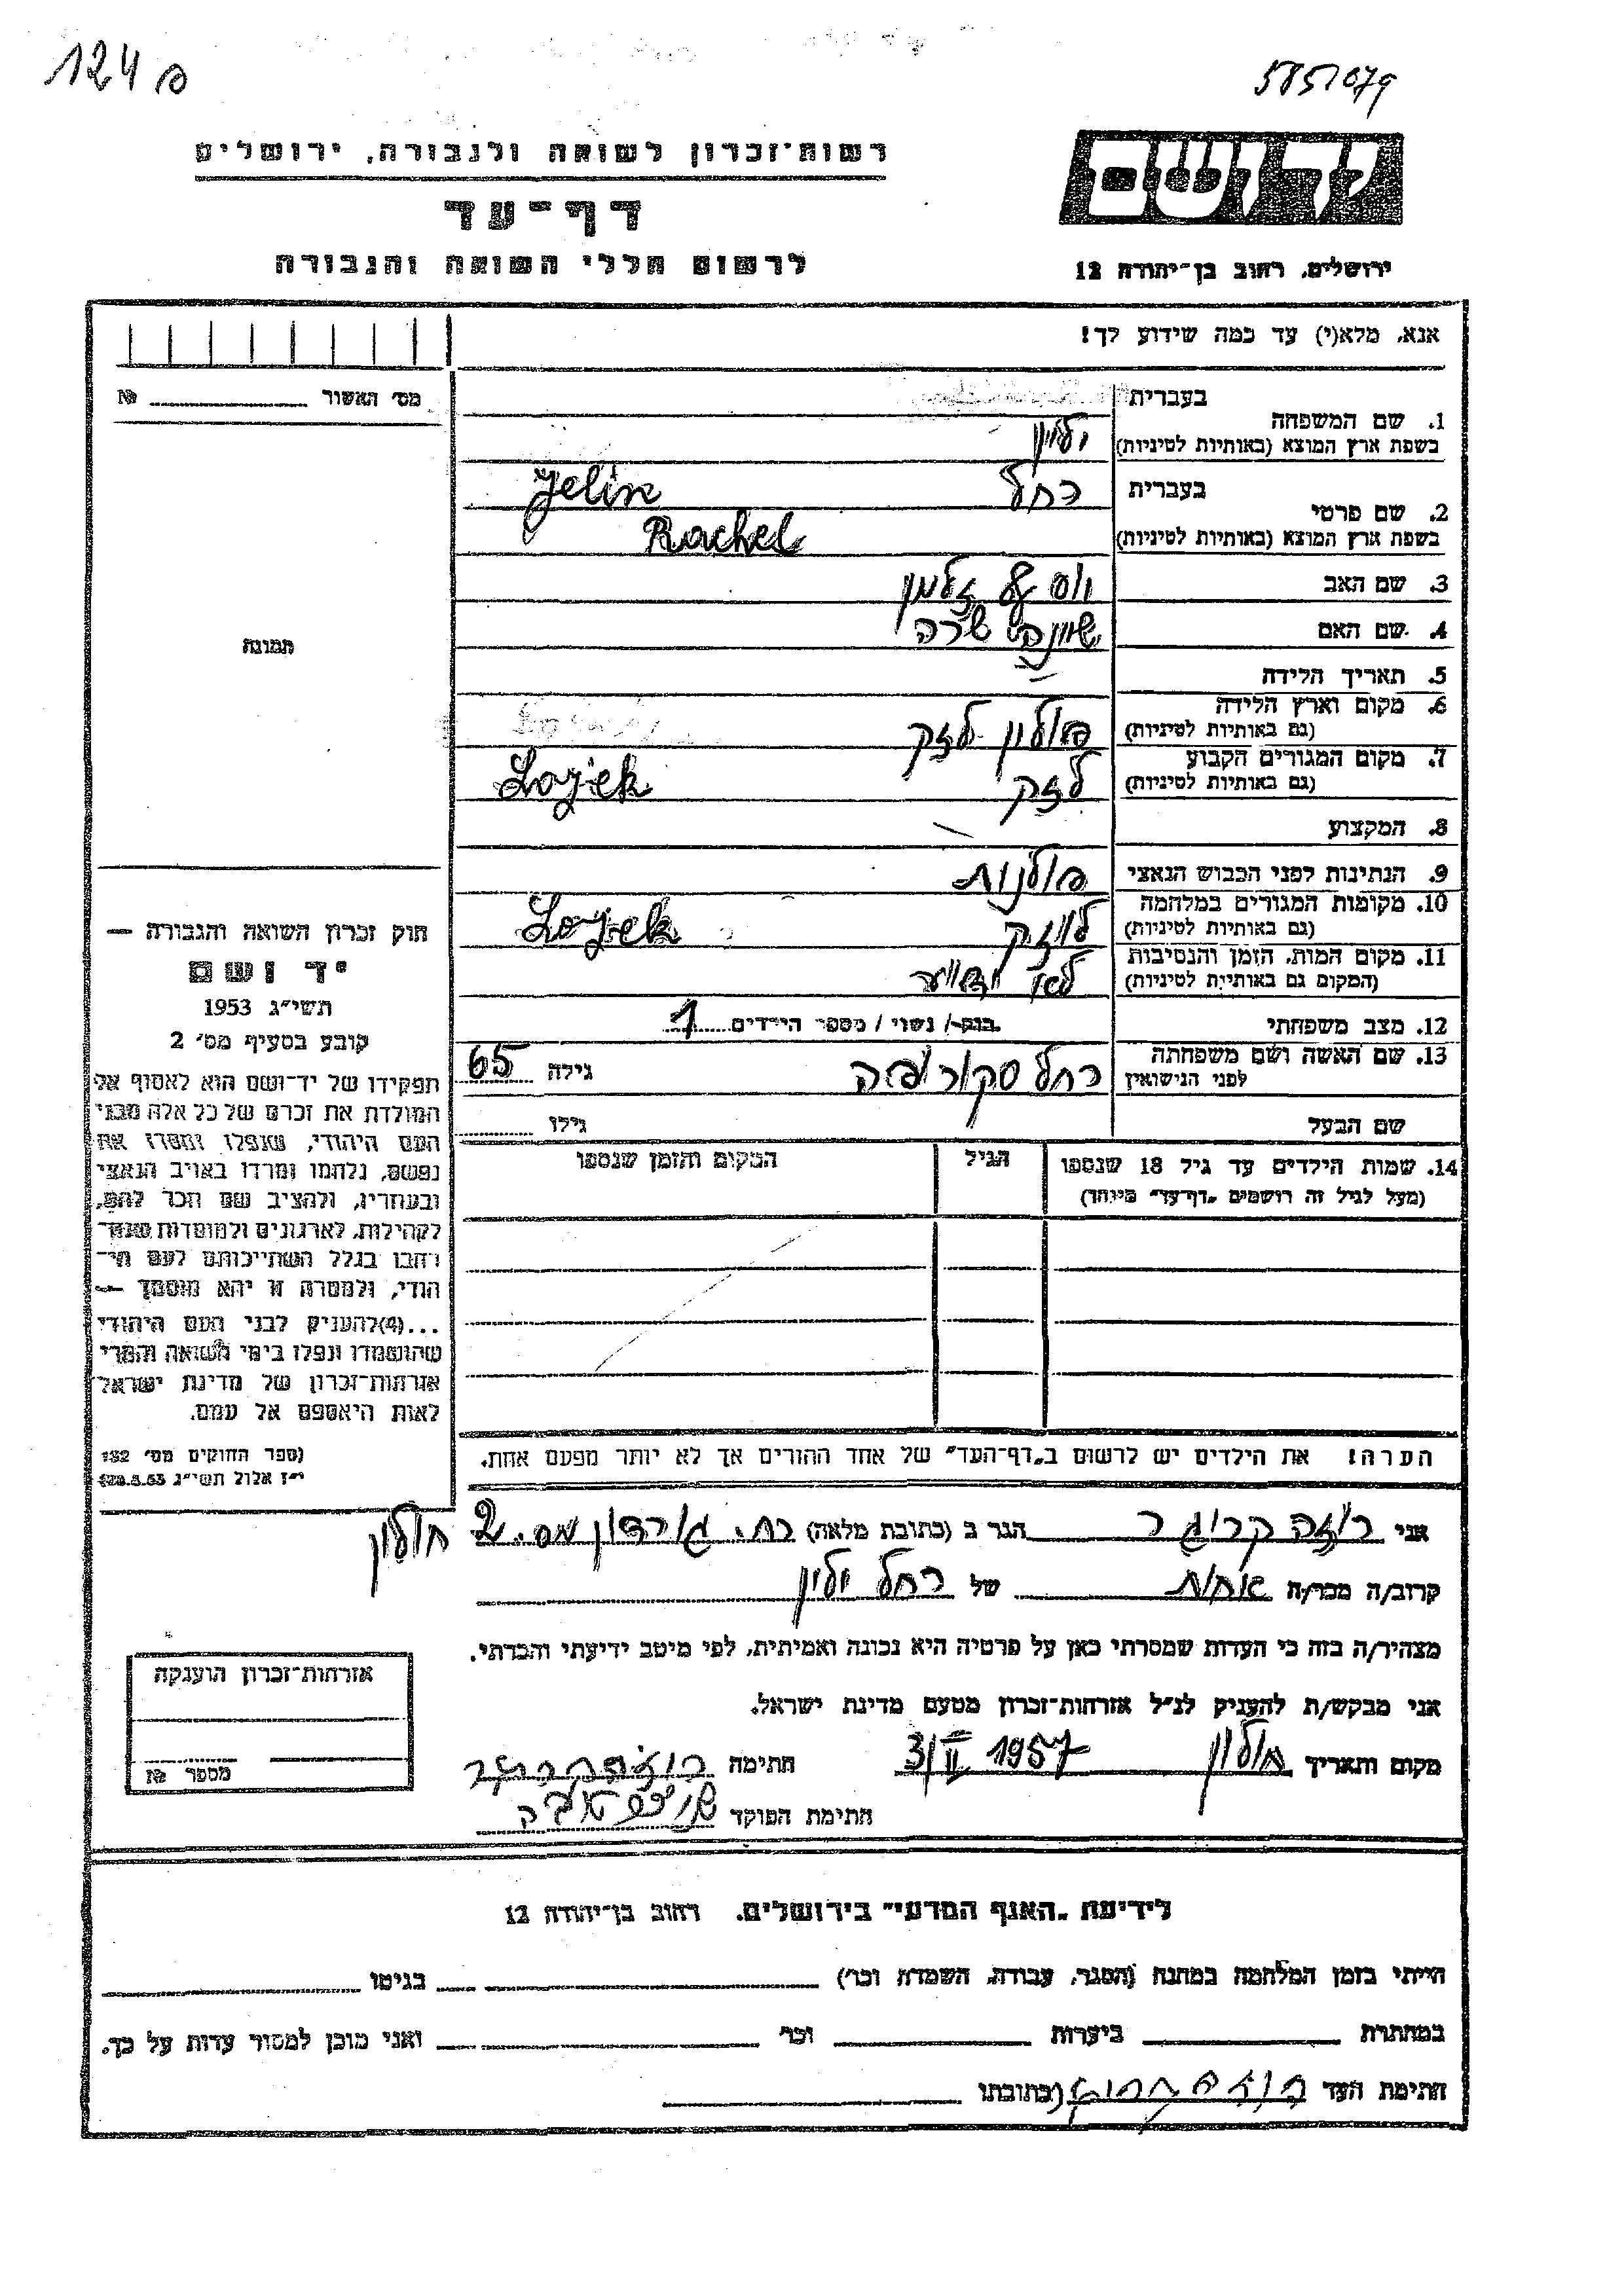 124 ס
5851079
רשות־זכרון לשואה ולגבורה, ירושלים
דף־עד
לרשום חללי השואה והגבורה
יד ושם
ירושלים, רחוב בן־יהודה 12
אנא, מלא(י) עד כמה שידוע לך!
מס׳ האשור № 
תמונה
בעברית
1. שם המשפחה
בשפת ארץ המוצא (באותיות לטיניות)
ילין
Jelin
בעברית
רחל
2. שם פרטי
בשפת ארץ המוצא (באותיות לטיניות)
Rachel
3. שם האב
זלמן
4. שם האם
שרה
5. תאריך הלידה —
6. מקום וארץ הלידה
(גם באותיות לטיניות)
פולין לזק
7. מקום המגורים הקבוע
(גם באותיות לטיניות)
לזק Lozjek
8. המקצוע —
9. הנתינות לפני הכבוש הנאצי
פולנית
10. מקומות המגורים במלחמה
(גם באותיות לטיניות)
לוזק Lozjek
11. מקום המות, הזמן והנסיבות
(המקום גם באותיות לטיניות)
לא ידוע
12. מצב משפחתי
רווק / נשוי / מספר הילדים 1
13. שם האשה ושם משפחתה
לפני הנישואין
רחל גילה 65
שם הבעל גילו
14. שמות הילדים עד גיל 18 שנספו
(מעל לגיל זה רושמים „דף־עד״ מיוחד)
הגיל
המקום והזמן שנספו
הערה: את הילדים יש לרשום ב„דף־העד״ של אחד ההורים אך לא יותר מפעם אחת.
חוק זכרון השואה והגבורה —
יד ושם
תשי״ג 1953
קובע בסעיף מס׳ 2
תפקידו של יד־ושם הוא לאסוף אל
המולדת את זכרם של כל אלה מבני
העם היהודי, שנפלו ומסרו את
נפשם, נלחמו ומרדו באויב הנאצי
ובעוזריו, ולהציב שם וזכר להם,
לקהילות, לארגונים ולמוסדות שנח־
רבו בגלל השתייכותם לעם הי־
הודי, ולמטרה זו יהא מוסמך —
...(4) להעניק לבני העם היהודי
שהושמדו ונפלו בימי השואה והמרי
אזרחות־זכרון של מדינת ישראל
לאות היאספם אל עמם.
(ספר החוקים מס׳ 132
י״ז אלול תשי״ג 28.8.53)
אני רוזה קרוגר הגר ב (כתובת מלאה) רח. גורדון מס. 2 חולון
קרוב/ה מכר/ה אחות של רחל ילין
מצהיר/ה בזה כי העדות שמסרתי כאן על פרטיה היא נכונה ואמיתית, לפי מיטב ידיעתי והכרתי.
אני מבקש/ת להעניק לנ״ל אזרחות־זכרון מטעם מדינת ישראל.
מקום ותאריך חולון 3/II 1957 חתימה רוזה קרוגר
חתימת הפוקד
אזרחות־זכרון הוענקה
מספר №
לידיעת „האגף המדעי״ בירושלים, רחוב בן־יהודה 12
הייתי בזמן המלחמה במחנה (הסגר, עבודה, השמדה וכו׳) בגיטו
במחתרת ביערות וכו׳ ואני מוכן למסור עדות על כך.
חתימת העד רוזה קרוגר (כתובתו